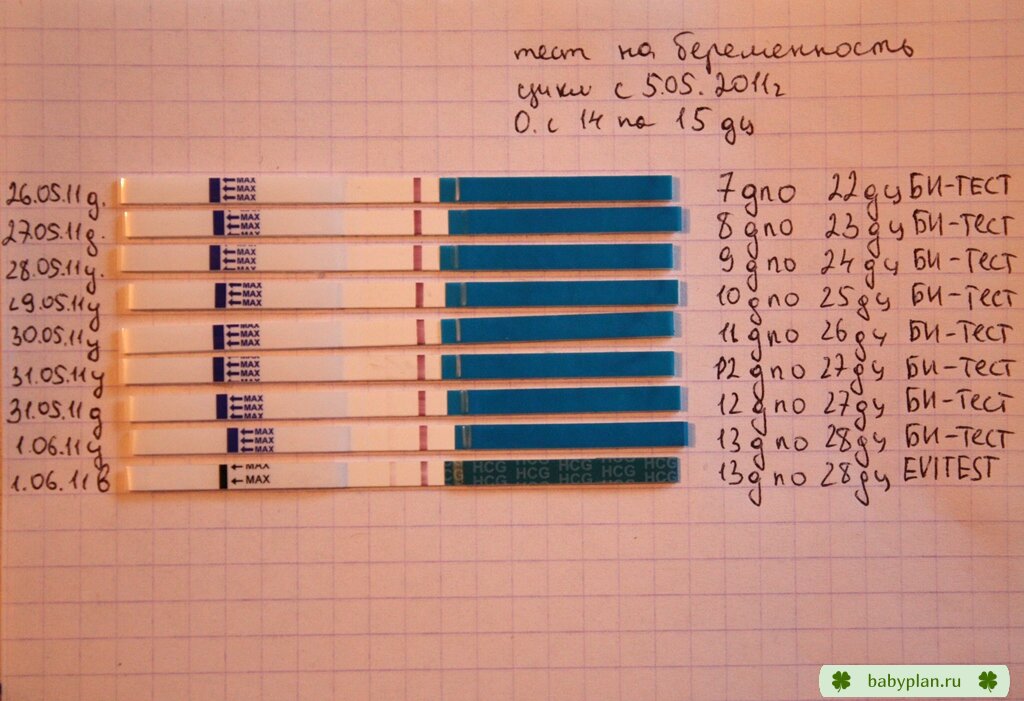 тест на беременность
цикл с 5.05.2011г
О. с 14 по 15 дц
26.05.11 д. MAX MAX MAX 7 дпо 22 дц БИ-ТЕСТ
27.05.11 д. MAX MAX MAX 8 дпо 23 дц БИ-ТЕСТ
28.05.11 у. MAX MAX MAX 9 дпо 24 дц БИ-ТЕСТ
29.05.11 у MAX MAX MAX 10 дпо 25 дц БИ-ТЕСТ
30.05.11 у MAX MAX MAX 11 дпо 26 дц БИ-ТЕСТ
31.05.11 у MAX MAX MAX 12 дпо 27 дц БИ-ТЕСТ
31.05.11 д MAX MAX MAX 12 дпо 27 дц БИ-ТЕСТ
1.06.11 у MAX MAX MAX 13 дпо 28 дц БИ-ТЕСТ
1.06.11 в MAX MAX HCG HCG HCG HCG HCG HCG HCG HCG HCG HCG 13 дпо 28 дц EVITEST
babyplan.ru